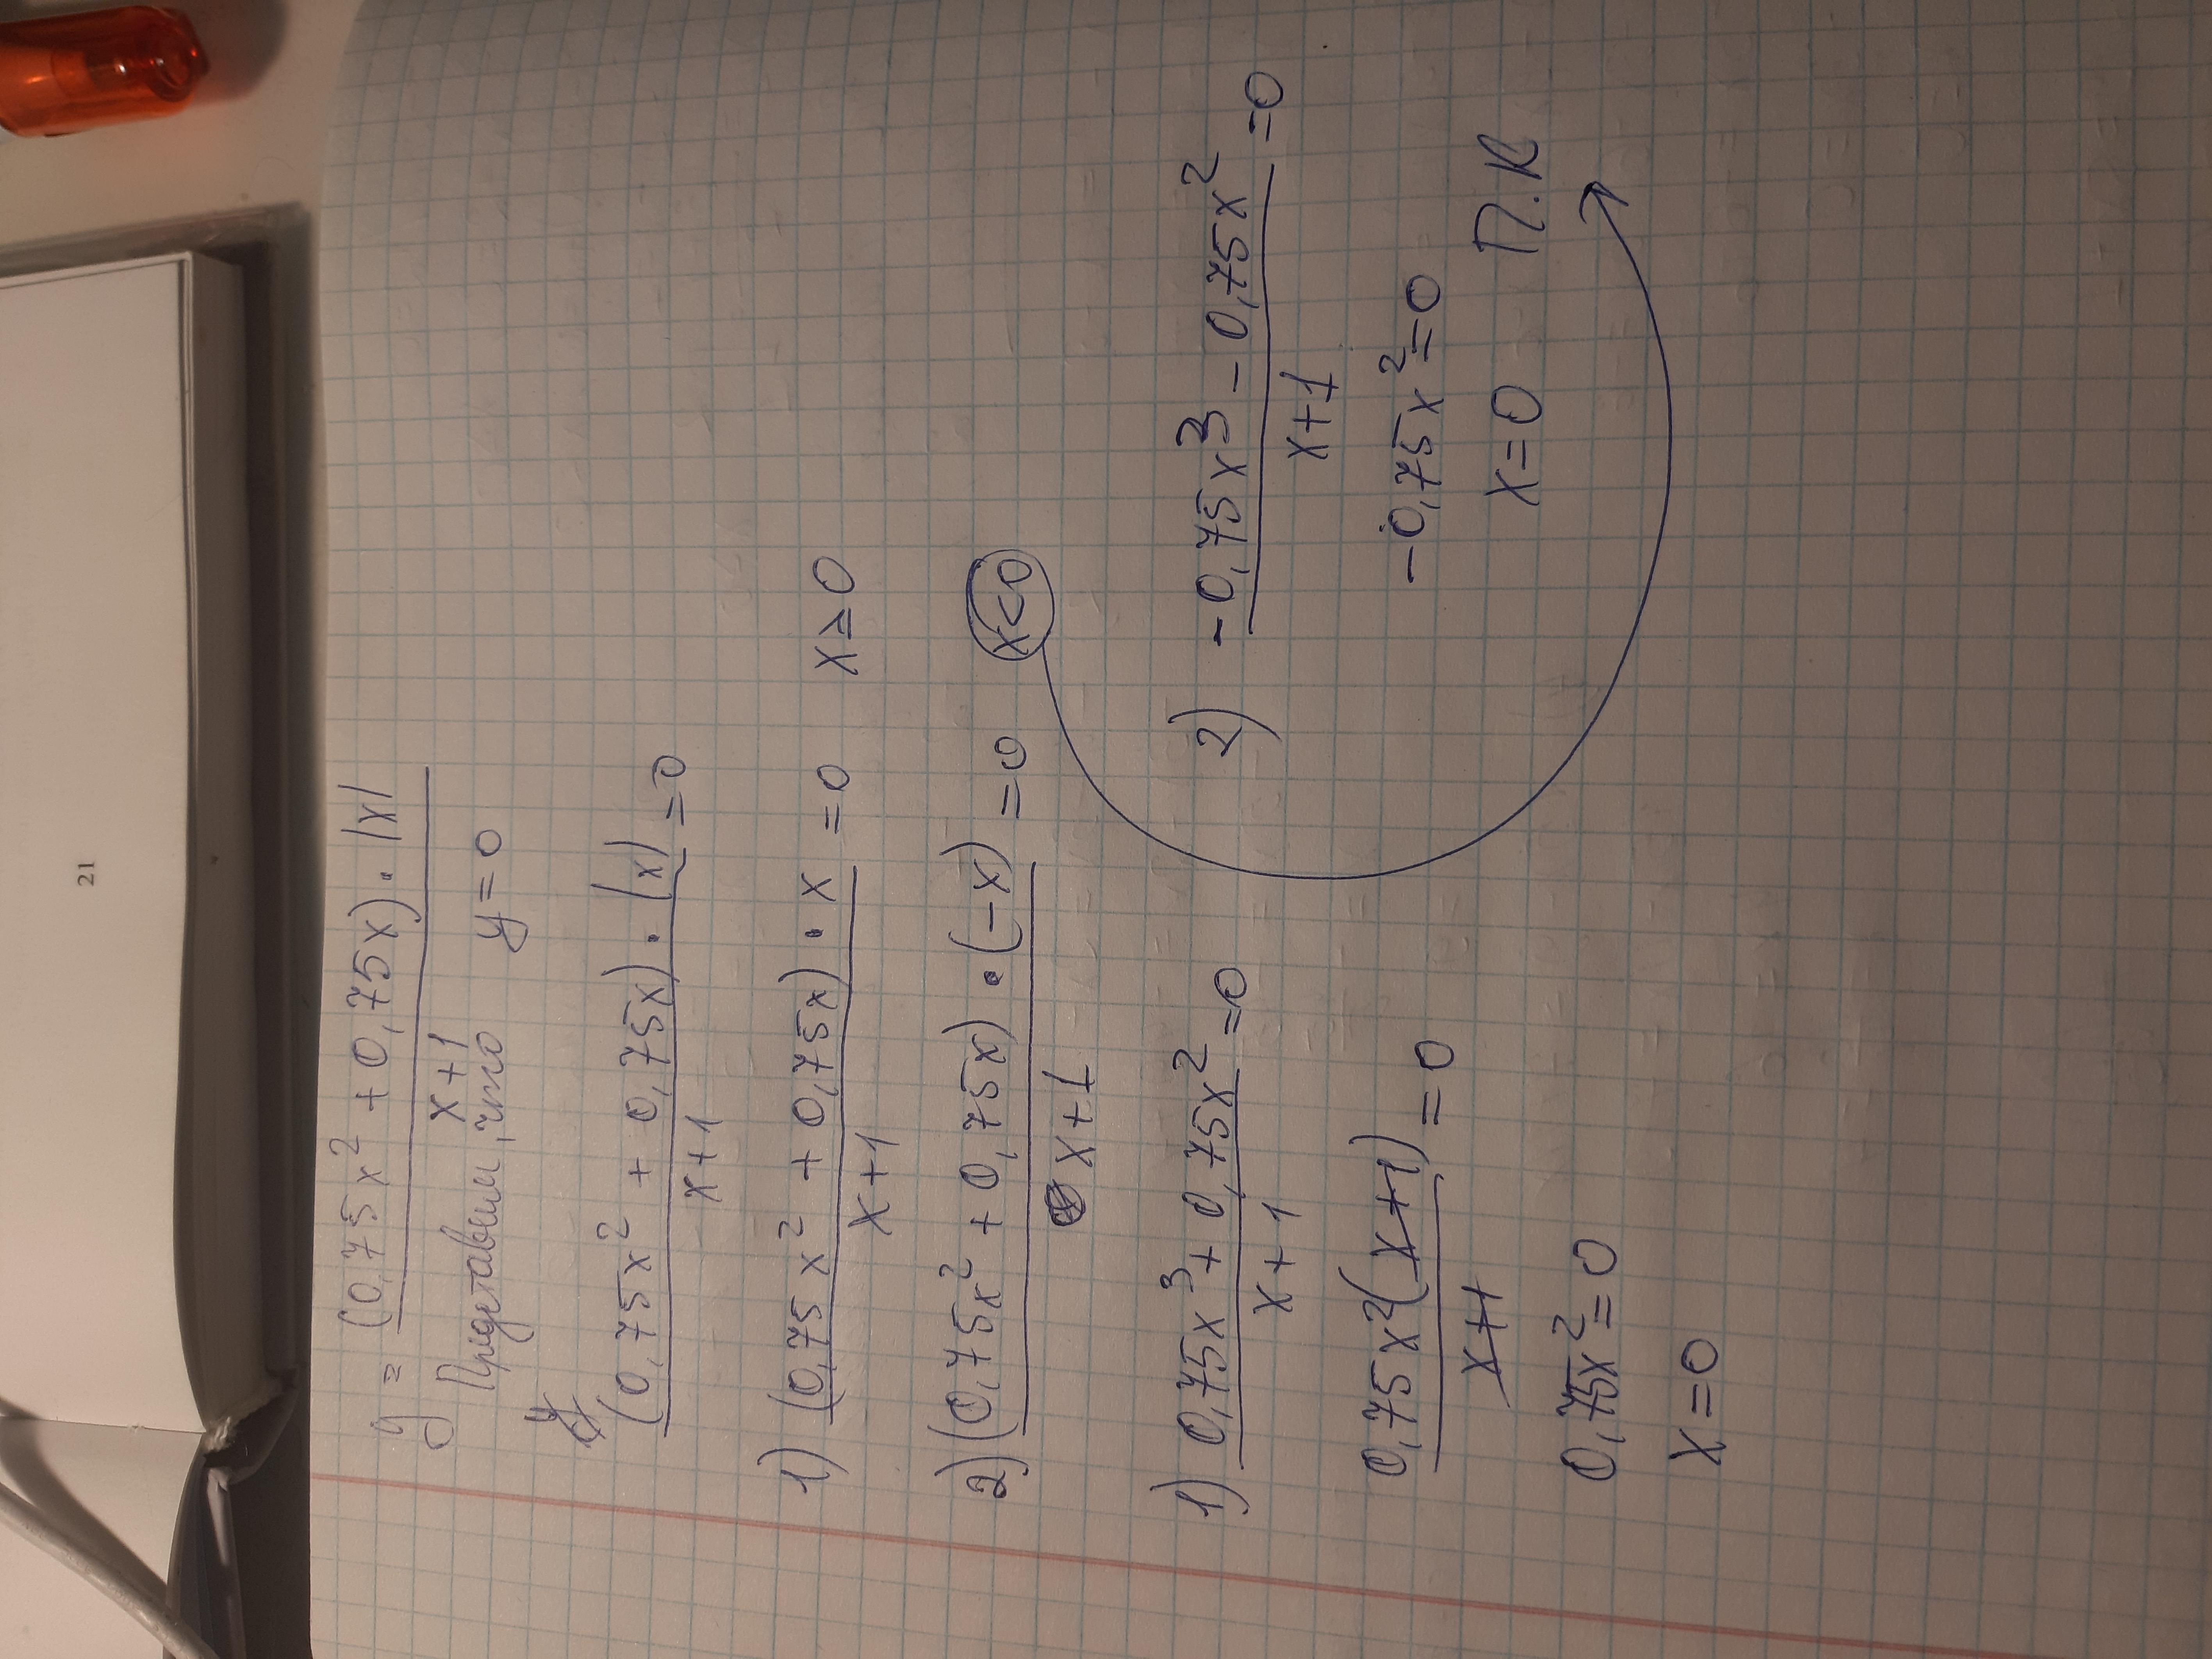 y = (0,75x² + 0,75x) · |x|
x+1
Представим, что y=0
(0,75x² + 0,75x) · |x| =0
x+1
1) (0,75x² + 0,75x) · x =0 x≥0
x+1
2) (0,75x² + 0,75x) · (-x) =0 x<0
x+1
1) 0,75x³ + 0,75x² =0
x+1
0,75x²(x+1) =0
x+1
0,75x²=0
x=0
2) -0,75x³ - 0,75x² =0
x+1
-0,75x²=0
x=0 П.К
21